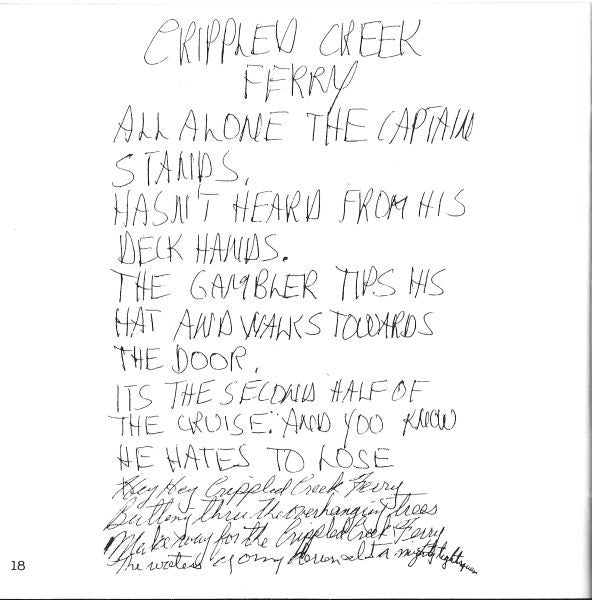 CRIPPLED CREEK
FERRY
ALL ALONE THE CAPTAIN
STANDS,
HASN'T HEARD FROM HIS
DECK HANDS.
THE GAMBLER TIPS HIS
HAT AND WALKS TOWARDS
THE DOOR,
ITS THE SECOND HALF OF
THE CRUISE. AND YOU KNOW
HE HATES TO LOSE
Hey Hey Crippled Creek Ferry
Butting thru the overhanging trees
Make way for the Crippled Creek Ferry
The waters going down its a mighty tight squeeze
18